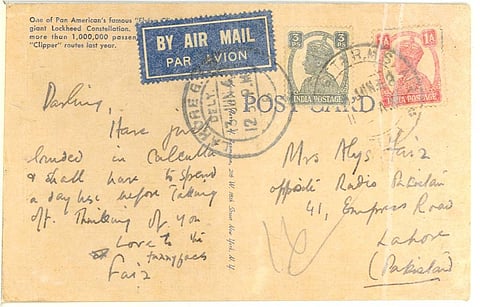 One of Pan American's famous
giant Lockheed Constellation
more than 1,000,000 passen
"Clipper" routes last year.
BY AIR MAIL
PAR AVION
3 PS
INDIA POSTAGE
1A
INDIA POSTAGE
LAHORE G.
DELY
POST CARD
Darling,
Have just
landed in Calcutta
& shall have to spend
a day here before taking
off. Thinking of you
Love to the
funnyfaces
Faiz
Mrs Alys Faiz
opposite Radio Pakistan
41, Empress Road
Lahore
(Pakistan)